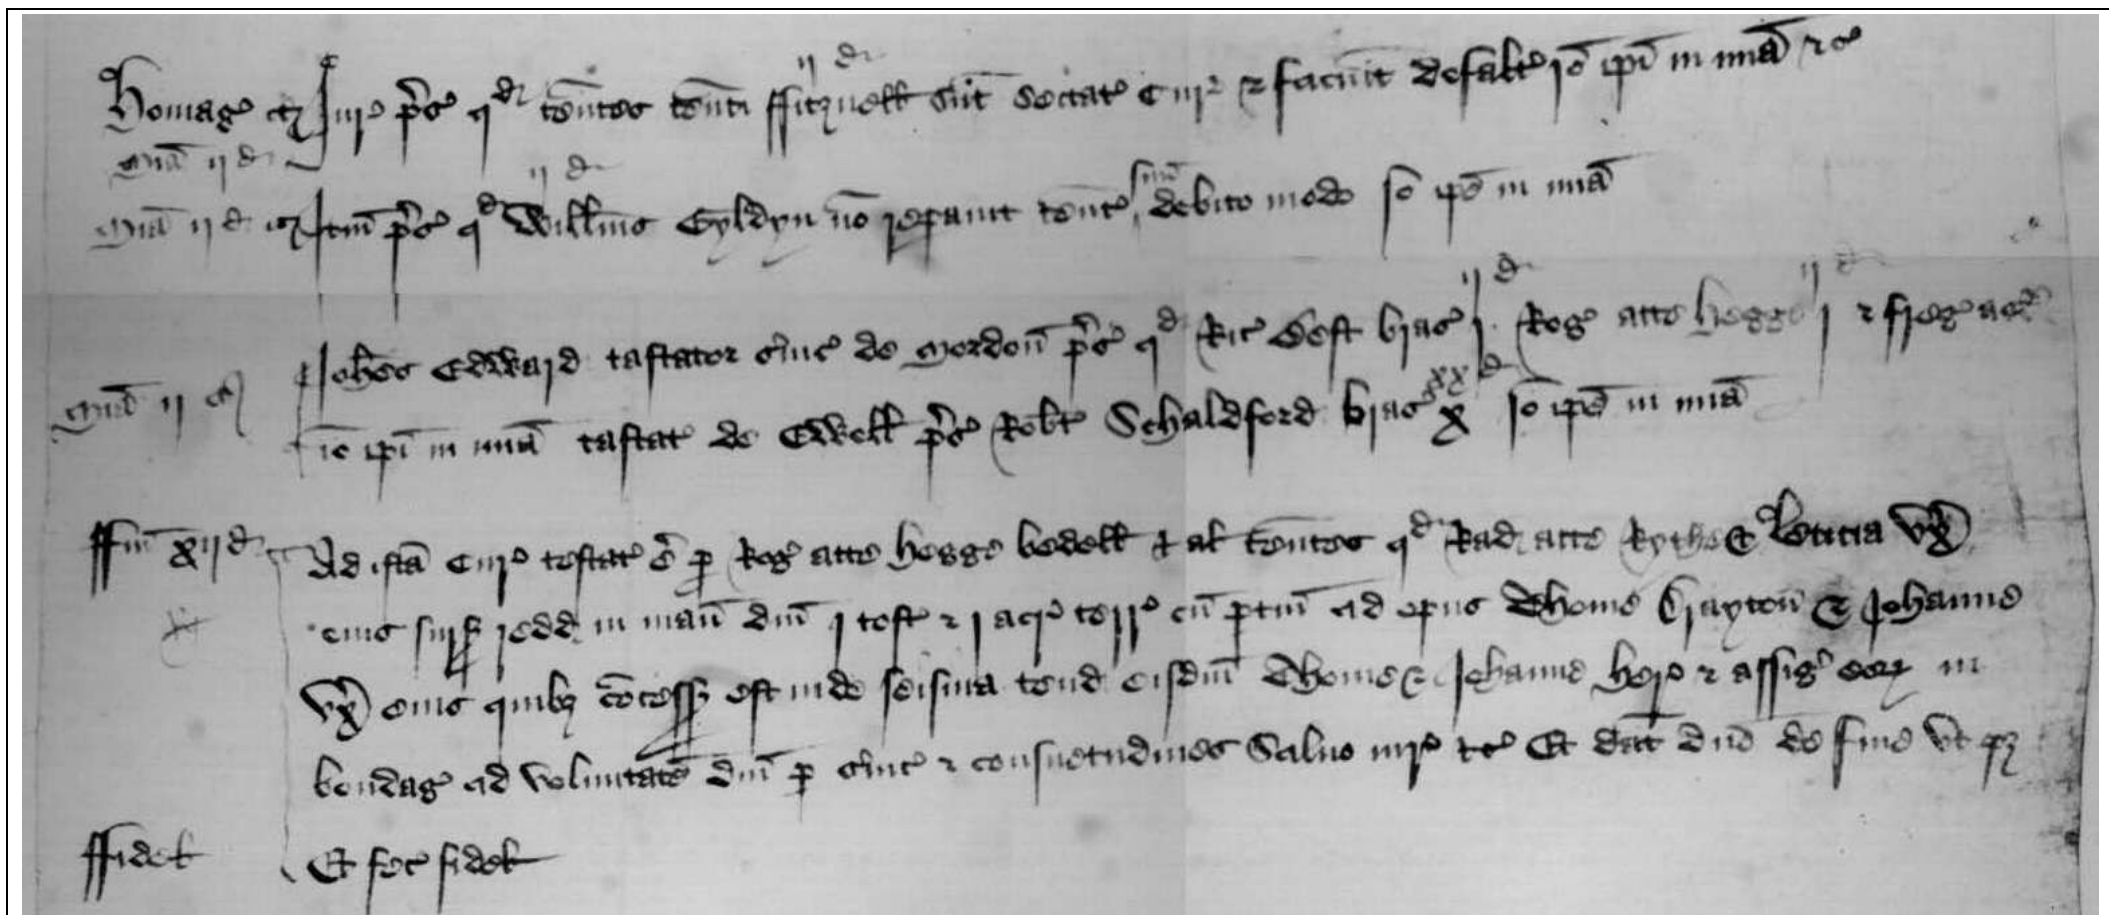 ij d
Homag et Jur pres qd tenentes tenti ffitznell sunt sectat Cur & faciunt defalt io ipi in mia &c
mia ij d
ij d
mia ij d Itm pres qd Willms Gyldyn no reparauit tent suu debito modo Io ipe in mia
ij d ij d
Johes Edward tastator Cuiuc de Mordon pres qd Ric Best brac j Rog atte hegge j & freg ass
xx d
mia ij io ipi in mia tastat de Ewell pres Robt Schaldford brac x Io ipe in mia
ffin xij d Ad ista Cur testat e p Rog atte hegge bedell & al tenentes qd Rad atte Rythe & Leticia vx
eius surs redd in man dni j toft & j acr terr cu ptin ad opus Thome Grayton & Johanne
vx eius quibz concess est inde seisina tend eisdm Thome & Johanne her & assig eorz in
bondag ad voluntate dni p & consuetudines Saluo iur &c Et dat dno de fine vt pz
ffidel Et fec fidel